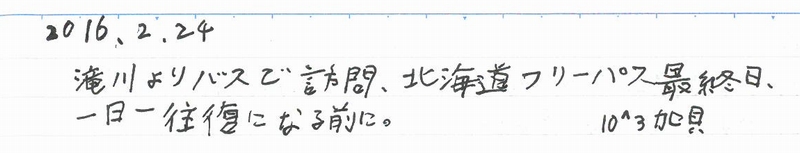 2016.2.24
滝川よりバスで訪問、北海道フリーパス最終日、
一日一往復になる前に。 10^3加貝